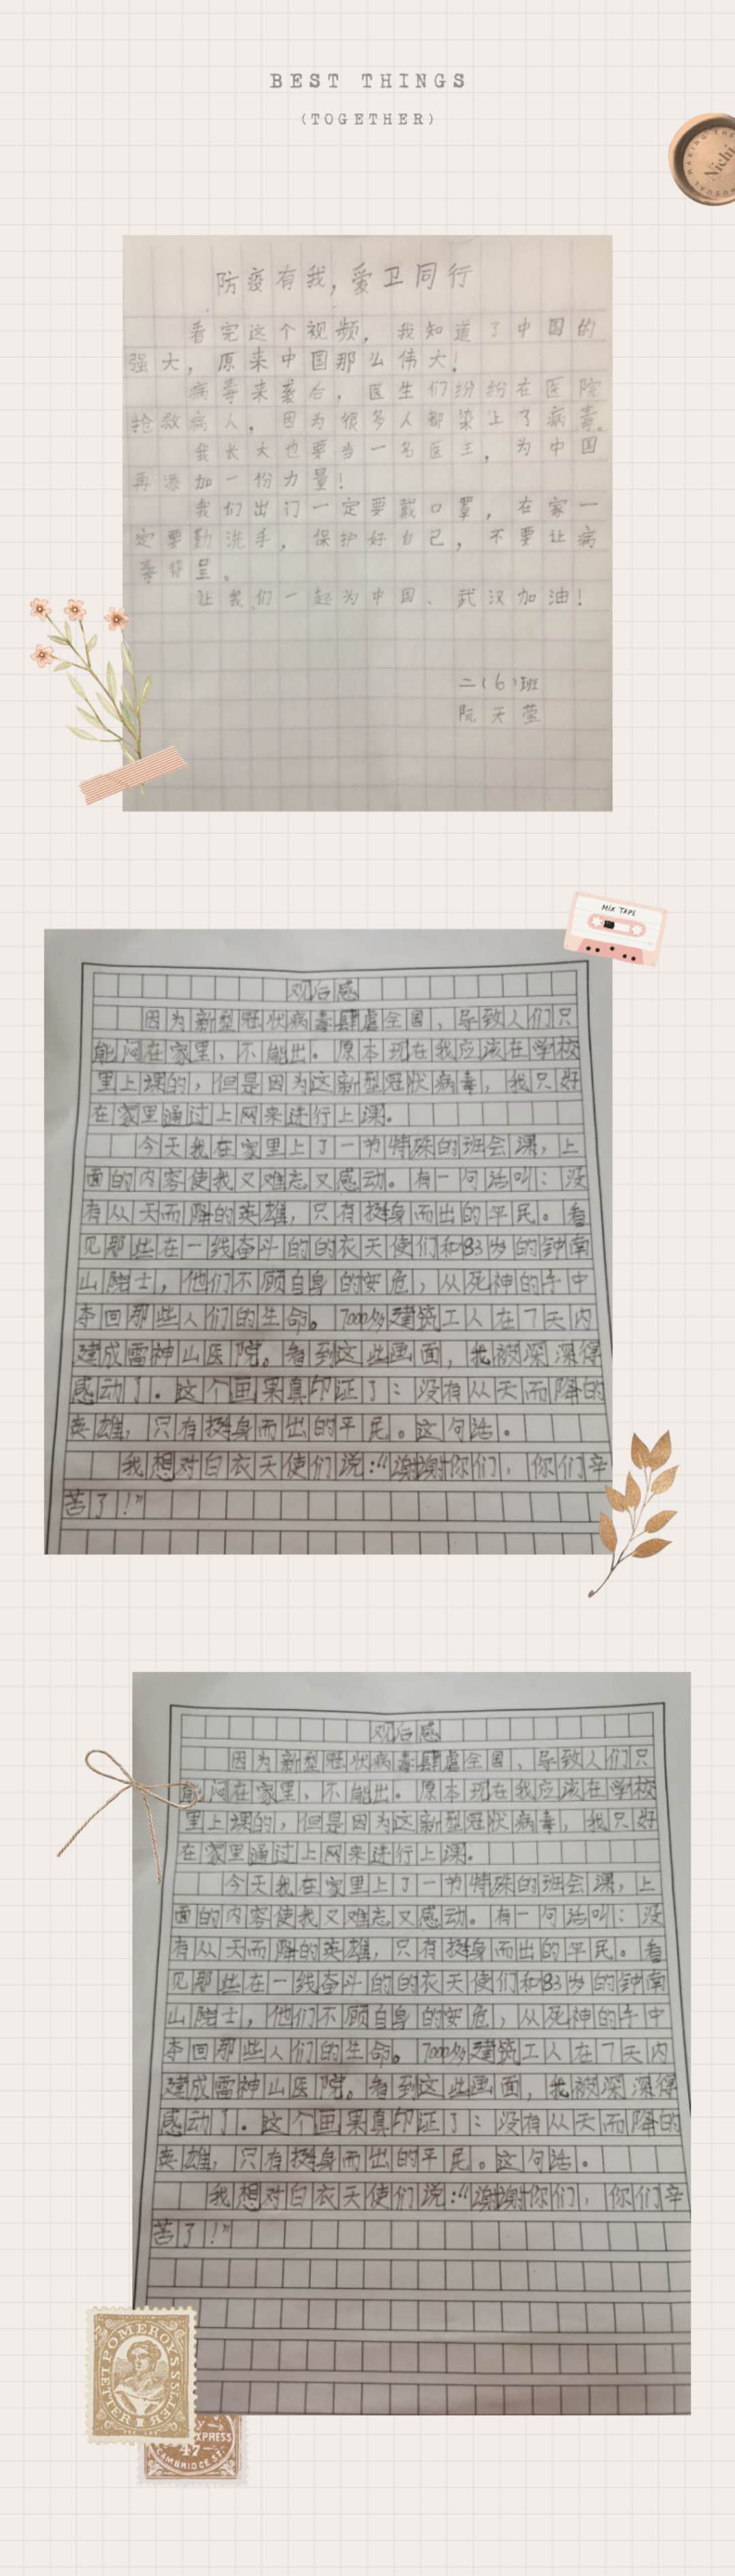 BEST THINGS
(TOGETHER)
MAKING THE
Nichi
防疫有我,爱卫同行
看完这个视频,我知道了中国的
强大,原来中国那么伟大!
病毒来袭后,医生们纷纷在医院
抢救病人,因为很多人都染上了病毒。
我长大也要当一名医生,为中国
再添加一份力量!
我们出门一定要戴口罩,在家一
定要勤洗手,保护好自己,不要让病
毒得呈。
让我们一起为中国、武汉加油!
二(6)班
阮天莹
MIX TAPE
观后感
因为新型冠状病毒肆虐全国,导致人们只
能闷在家里,不能出。原本现在我应该在学校
里上课的,但是因为这新型冠状病毒,我只好
在家里通过上网来进行上课。
今天我在家里上了一节特殊的班会课,上
面的内容使我又难忘又感动。有一句话叫:没
有从天而降的英雄,只有挺身而出的平民。看
见那些在一线奋斗的的衣天使们和83岁的钟南
山院士,他们不顾自身的安危,从死神的手中
夺回那些人们的生命。7000多建筑工人在7天内
建成雷神山医院。看到这些画面,我被深深得
感动了.这个画果真印证了:没有从天而降的
英雄,只有挺身而出的平民。这句话。
我想对白衣天使们说:“谢谢你们,你们辛
苦了!”
观后感
因为新型冠状病毒肆虐全国,导致人们只
能闷在家里,不能出。原本现在我应该在学校
里上课的,但是因为这新型冠状病毒,我只好
在家里通过上网来进行上课。
今天我在家里上了一节特殊的班会课,上
面的内容使我又难忘又感动。有一句话叫:没
有从天而降的英雄,只有挺身而出的平民。看
见那些在一线奋斗的的衣天使们和83岁的钟南
山院士,他们不顾自身的安危,从死神的手中
夺回那些人们的生命。7000多建筑工人在7天内
建成雷神山医院。看到这些画面,我被深深得
感动了.这个画果真印证了:没有从天而降的
英雄,只有挺身而出的平民。这句话。
我想对白衣天使们说:“谢谢你们,你们辛
苦了!”
POMEROY'S
LETTER
EXPRESS
47
CAMBRIDGE ST.